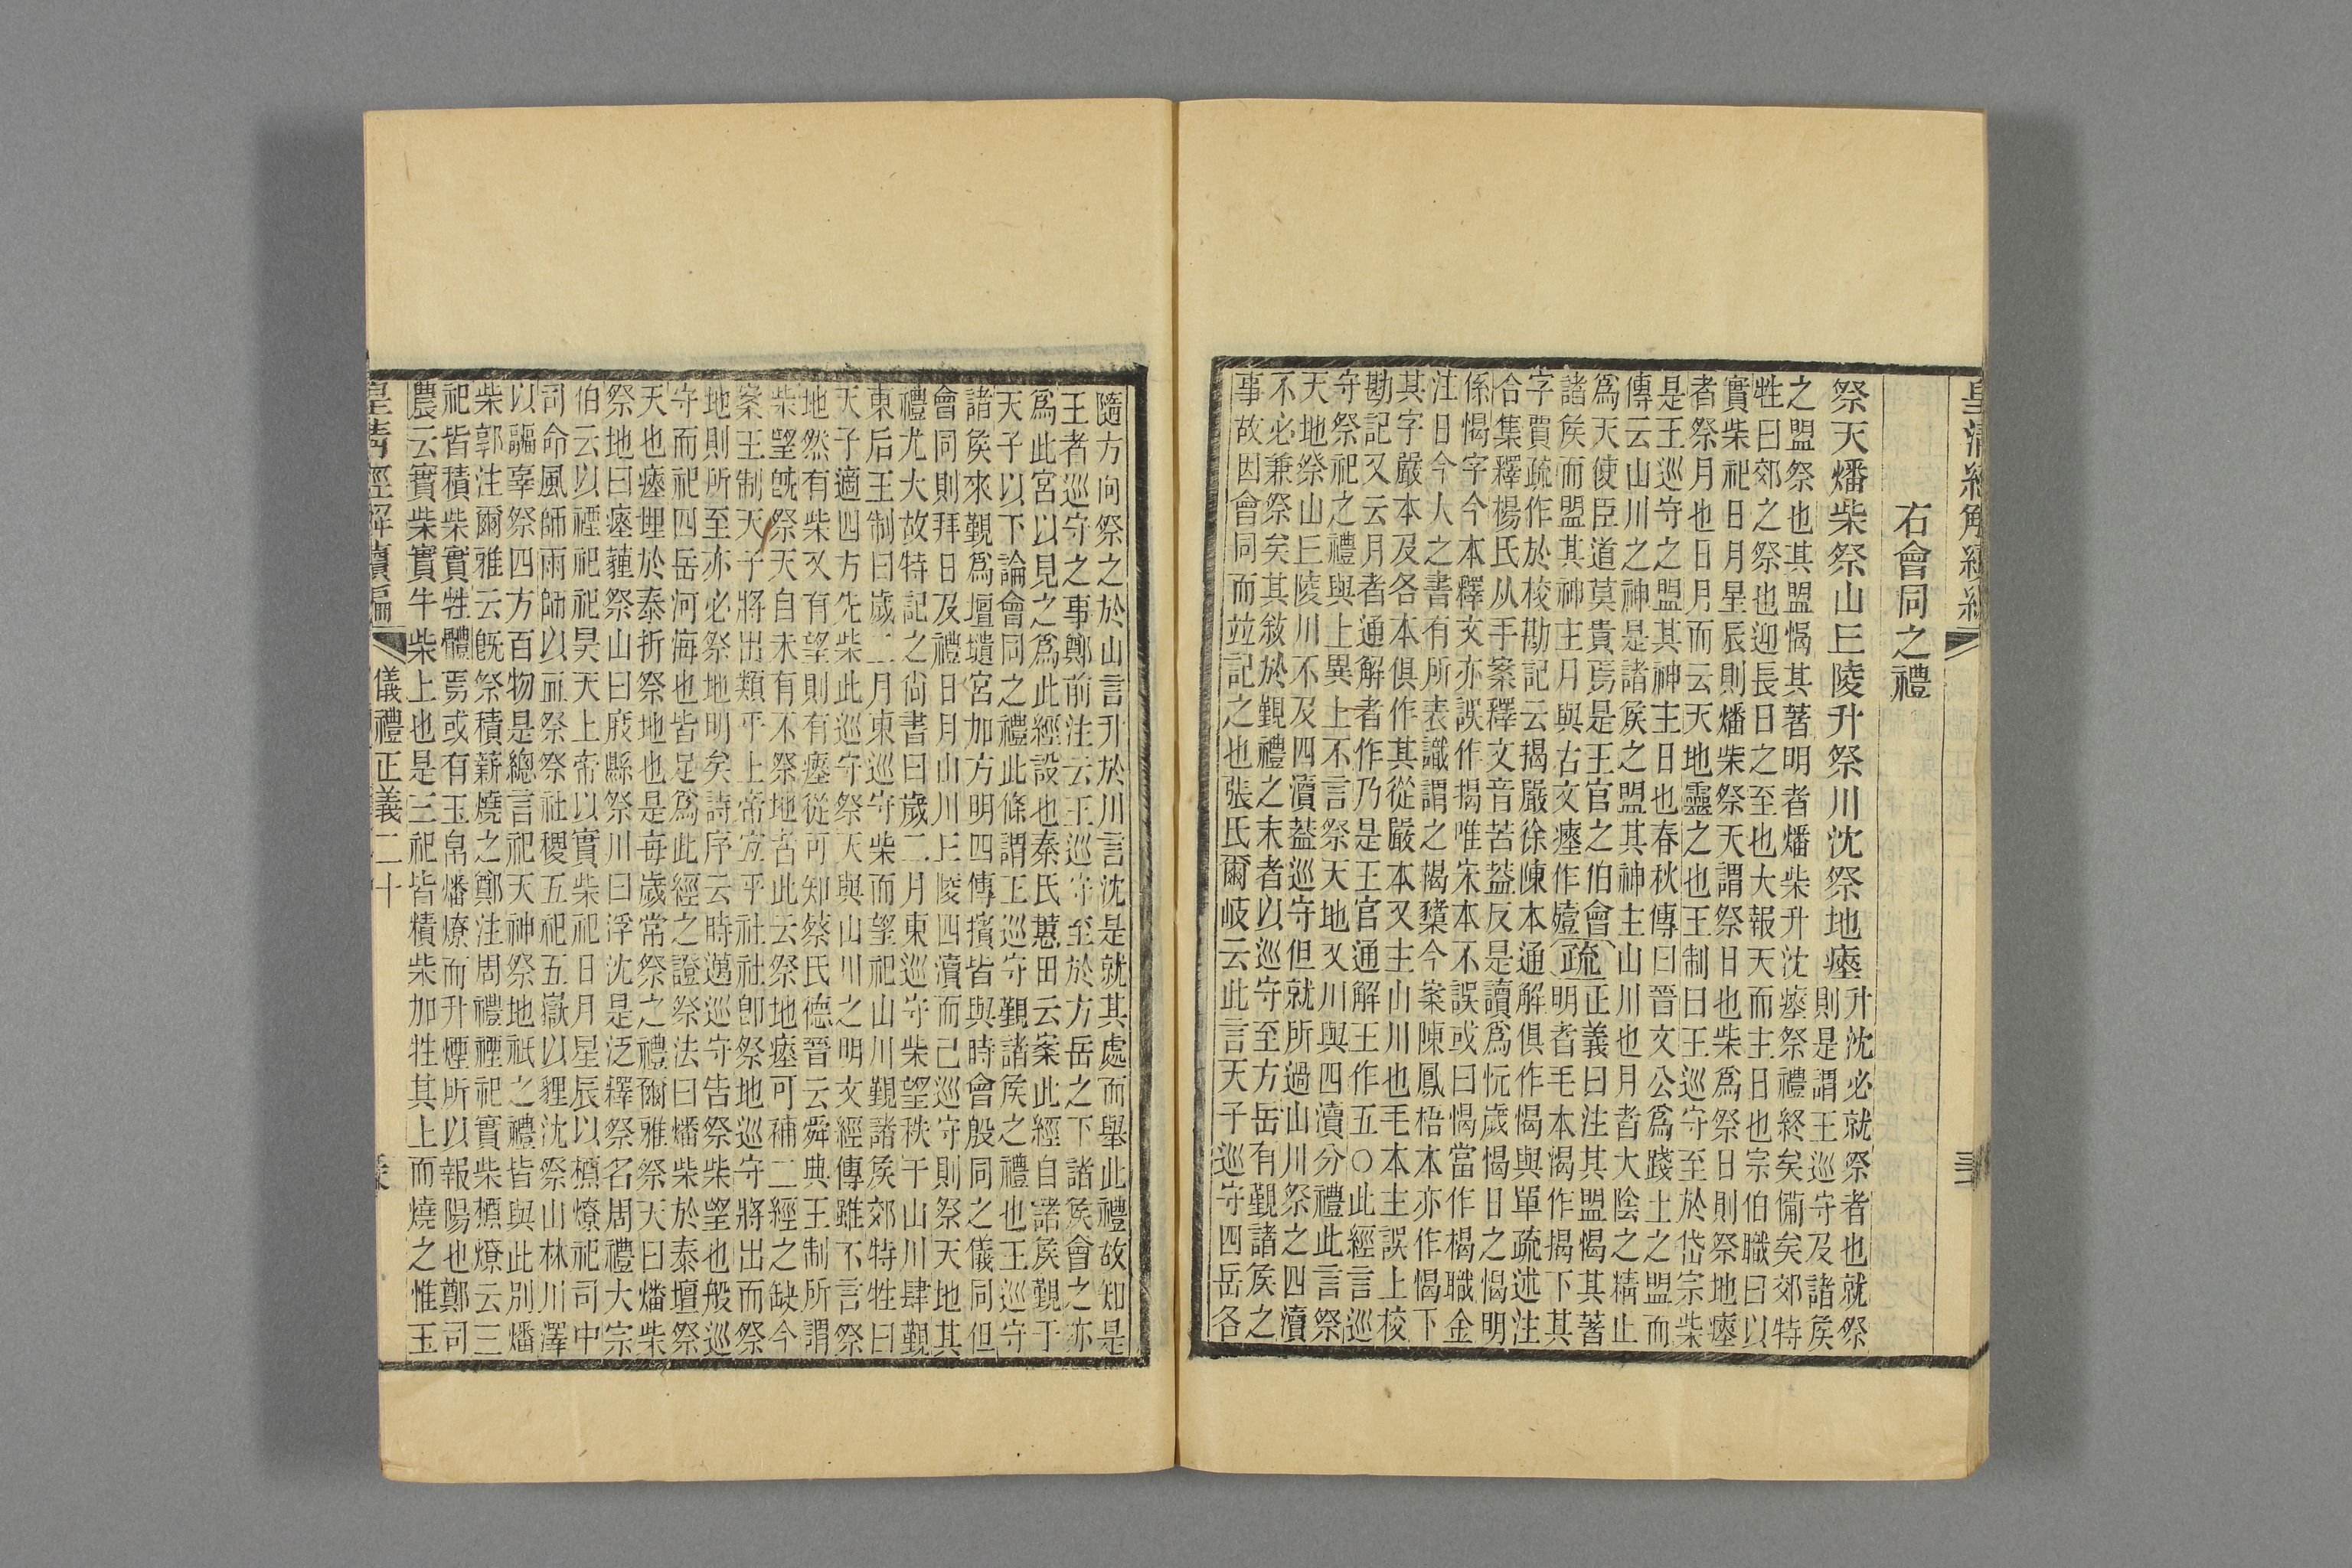 皇清經解續編
右會同之禮
祭天燔柴祭山丘陵升祭川沈祭地瘞升沈必就祭者也就祭
則是謂王巡守及諸矦
之盟祭也其盟愒其著明者燔柴升沈瘞祭禮終矣備矣郊特
牲曰郊之祭也迎長日之至也大報天而主日也宗伯職曰以
實柴祀日月星辰則燔柴祭天謂祭日也柴爲祭日則祭地瘞
者祭月也日月而云天地靈之也王制曰王巡守至於岱宗柴
是王巡守之盟其神主日也春秋傳曰晉文公爲踐土之盟而
傳云山川之神是諸矦之盟其神主山川也月者大陰之精止
爲天使臣道莫貴焉是王官之伯會疏正義曰注其盟愒其著
諸矦而盟其神主月與古文瘞作殪明者毛本愒作揭下其
字賈疏作於校勘記云揭嚴徐陳本通解俱作愒與單疏述注
合集釋楊氏从手案釋文音苦葢反是讀爲忨歲愒日之愒明
係愒字今本釋文亦誤作揭唯宋本不誤或曰愒當作楬職金
注曰今大之書有所表識謂之楬櫫今案陳鳳梧本亦作愒下
其字嚴本及各本俱作其從嚴本又主山川也毛本主誤上校
勘記又云月者通解者作乃是王官通解王作五〇此經言巡
守祭祀之禮與上異上不言祭天地又川與四瀆分禮此言祭
天地祭山丘陵川不及四瀆葢巡守但就所過山川祭之四瀆
不必兼祭矣其敘於覲禮之末者以巡守至方岳有覲諸矦之
事故因會同而竝記之也張氏爾岐云此言天子巡守四岳各
隨方向祭之於山言升於川言沈是就其處而舉此禮故知是
王者巡守之事鄭前注云王巡守至於方岳之下諸矦會之亦
爲此宮以見之爲此經設也秦氏蕙田云案此經自諸矦覲于
天子以下論會同之禮此條謂王巡守覲諸矦之禮也王巡守
諸矦來覲爲壇壝宮加方明四傳擯皆與時會殷同之儀同但
會同則拜日及禮日月山川丘陵四瀆而已巡守則祭天地其
禮尤大故特記之尙書曰歲二月東巡守柴望秩于山川肆覲
東后王制曰歲二月東巡守柴而望祀山川覲諸矦郊特牲曰
天子適四方先柴此巡守祭天與山川之明文經傳雖不言祭
地然有柴又有望則有瘞從可知蔡氏德晉云舜典王制所謂
柴望旣祭天自未有不祭地者此云祭地瘞可補二經之缺今
案王制天子將出類乎上帝宜乎社社卽祭地巡守將出而祭
地則所至亦必祭地明矣詩序云時邁巡守告祭柴望也般巡
守而祀四岳河海也皆足爲此經之證祭法曰燔柴於泰壇祭
天也瘞埋於泰折祭地也是每歲常祭之禮爾雅祭天曰燔柴
祭地曰瘞薶祭山曰庪縣祭川曰浮沈是泛釋祭名周禮大宗
伯云以禋祀祀昊天上帝以實柴祀日月星辰以槱燎祀司中
司命風師雨師以血祭祭社稷五祀五嶽以貍沈祭山林川澤
以疈辜祭四方百物是總言祀天神祭地祇之禮皆與此別燔
柴郭注爾雅云旣祭積薪燒之鄭注周禮禋祀實柴槱燎云三
祀皆積柴實牲體焉或有玉帛燔燎而升煙所以報陽也鄭司
農云實柴實牛柴上也是三祀皆積柴加牲其上而燒之惟玉
皇清經解續編 儀禮正義二十